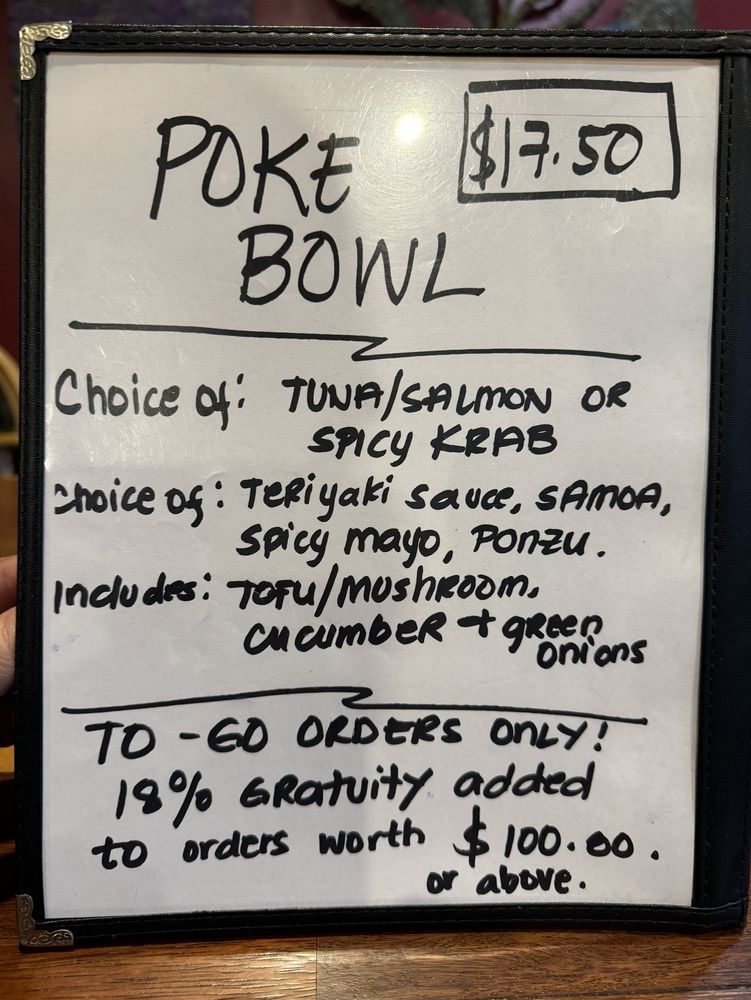 POKE
$17.50
BOWL
Choice of: TUNA/SALMON OR
SPICY KRAB
Choice of: Teriyaki sauce, SAMOA,
Spicy mayo, PONZU.
Includes: TOFU/MUSHROOM,
CUCUMBER + green
onions
TO-GO ORDERS ONLY!
18% GRATUITY added
to orders worth $100.00.
or above.